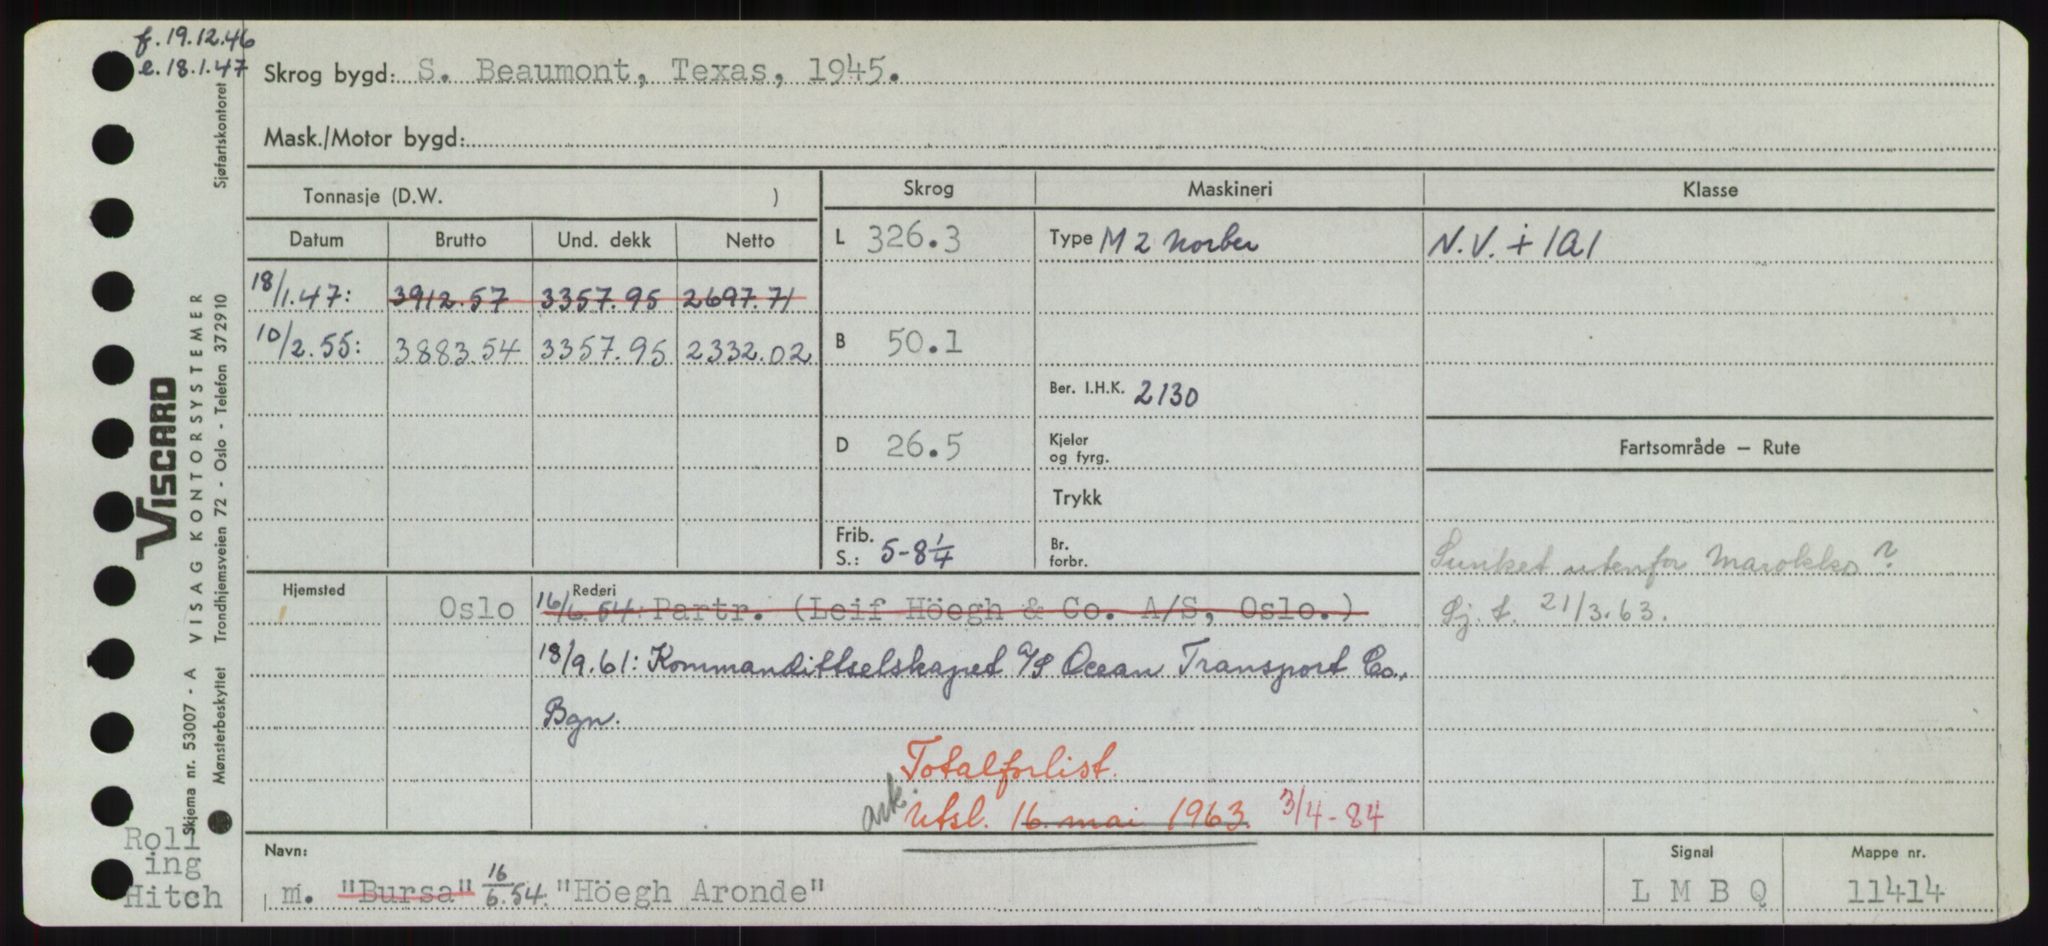 f. 19.12.46
e. 18.1.47
Skrog bygd: S. Beaumont, Texas, 1945.
Mask./Motor bygd:
Tonnasje (D.W. )
Skrog Maskineri Klasse
Datum Brutto Und. dekk Netto
L 326.3 Type M 2 Norber N.V. + 1A1
18/1.47: 3912.57 3357.95 2697.71
10/2.55: 3883.54 3357.95 2332.02
B 50.1
Ber. I.H.K. 2130
D 26.5 Kjeler og fyrg.
Fartsområde — Rute
Trykk
Frib. S.: 5-8 1/4 Br. forbr.
Sunket utenfor Marokko?
Sj. t. 21/3.63.
Hjemsted Rederi
Oslo 16/6.54: Partr. (Leif Höegh & Co. A/S, Oslo.)
18/9.61: Kommandittselskapet A/S Ocean Transport Co.,
Bgn.
Totalforlist.
ark. Utsl. 16. mai 1963. 3/4-84
Navn: Signal Mappe nr.
m. "Bursa" 16/6.54: "Höegh Aronde" L M B Q 11414
Roll
ing
Hitch
VISCARD
Skjema nr. 53007 - A VISAG KONTORSYSTEMER
Mønsterbeskyttet Trondhjemsveien 72 - Oslo - Telefon 372910 Sjøfartskontoret